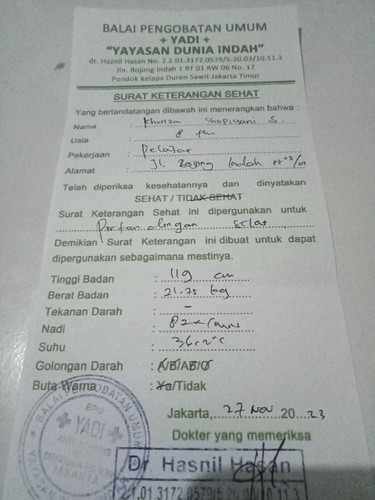 BALAI PENGOBATAN UMUM
+ YADI +
"YAYASAN DUNIA INDAH"
dr. Hasnil Hasan No. 2.2.01.3172.0579/5.20.03/10.11.3
Jln. Bojong Indah 1 RT 01 RW 06 No. 17
Pondok Kelapa Duren Sawit Jakarta Timur
SURAT KETERANGAN SEHAT
Yang bertandatangan dibawah ini menerangkan bahwa :
Nama : Khanza S.
Usia : 8 thn
Pekerjaan : Pelajar
Alamat : Jl Bojong Indah
Telah diperiksa kesehatannya dan dinyatakan
SEHAT / TIDAK SEHAT
Surat Keterangan Sehat ini dipergunakan untuk
Pertandingan silat
Demikian Surat Keterangan ini dibuat untuk dapat
dipergunakan sebagaimana mestinya.
Tinggi Badan : 119 cm
Berat Badan : 21.75 kg
Tekanan Darah : -
Nadi : 82x/mnt
Suhu :
Golongan Darah : A/B/AB/O
Buta Warna : Ya/Tidak
Jakarta, 27 Nov 2023
Dokter yang memeriksa
BALAI PENGOBATAN UMUM
BPU
+ YADI +
JAKARTA
Dr. Hasnil Hasan